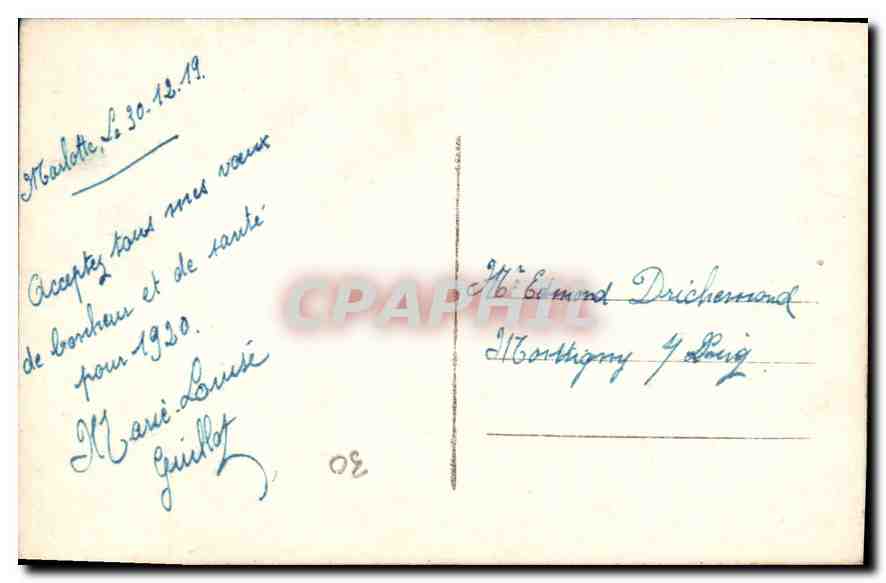 Marlotte, Le 30.12.19.
Acceptez tous mes vœux
de bonheur et de santé
pour 1920.
Marie-Louise
Guillot
Mr Edmond Drichemond
Montigny s/ Loing
30
CPAPHIL